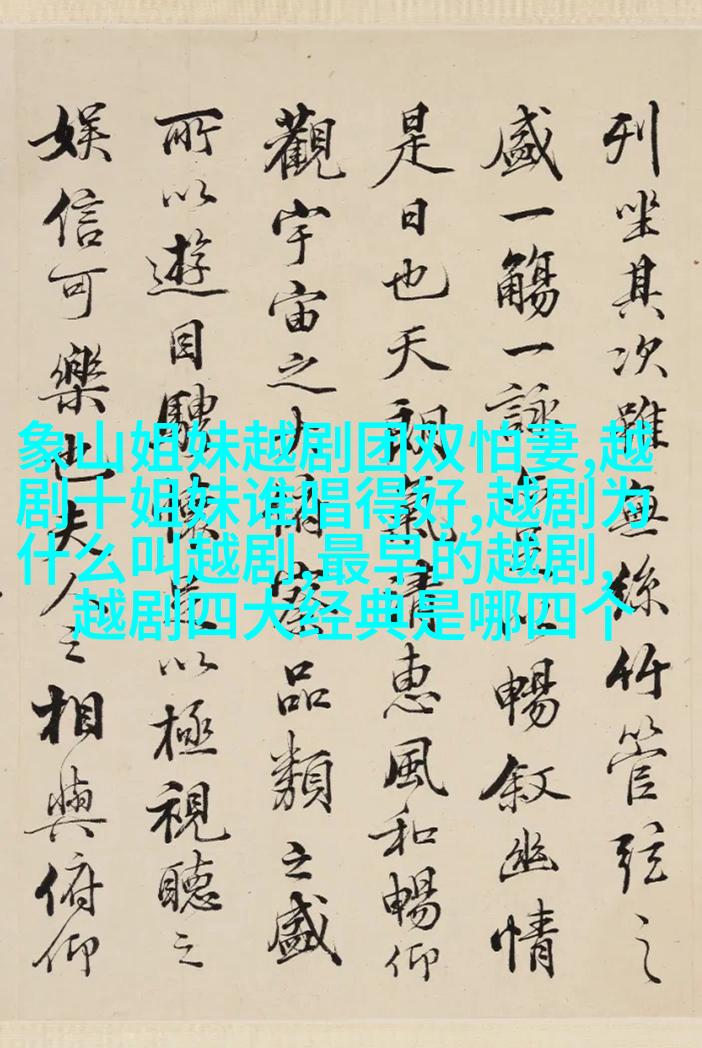 列坐其次雖無絲竹管弦之
盛一觴一詠暢叙幽情
是日也天朗氣清惠風和暢仰
觀宇宙之大俯察品類之盛
所以遊目騁懷足以極視聽之
娛信可樂也夫人之相與俯仰
象山姐妹越剧团双怕妻,越
剧十姐妹谁唱得好,越剧为
什么叫越剧,最早的越剧,
越剧四大经典是哪四个